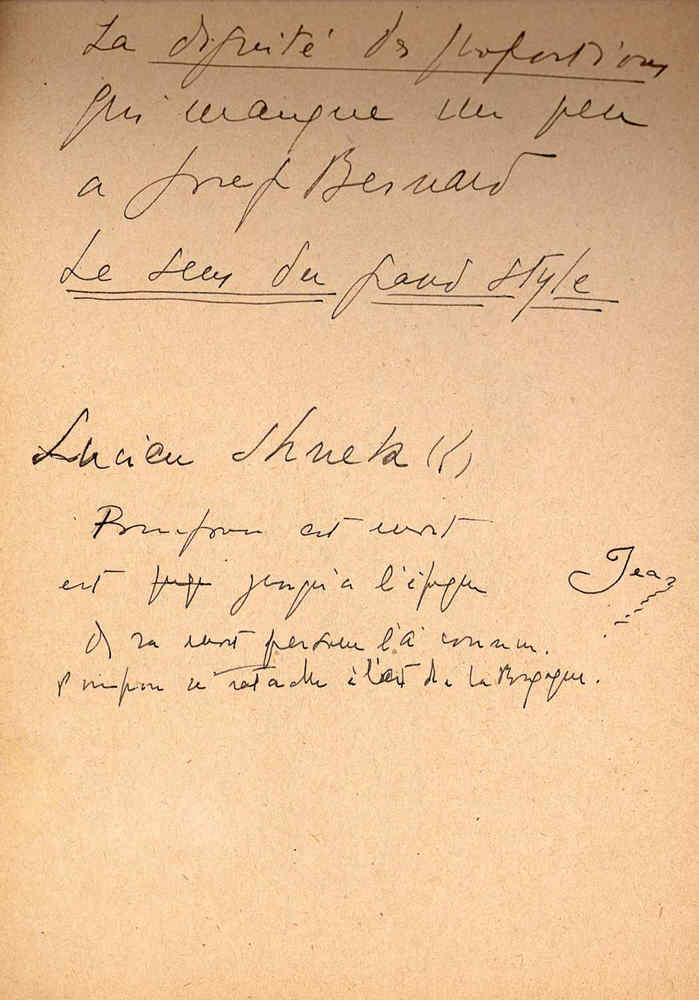 La dignité des proportions
qui manque un peu
a Josef Bernard
Le sens du grand style
Lucien
Pompon est mort
est jusqu'a l'époque
Jean
de sa mort personne l'a connu.
Pompon se rattache à l'art de la Bourgogne.